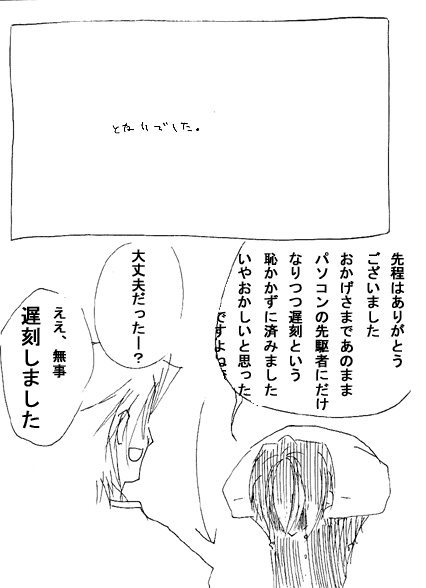 となりでした。
先程はありがとう
ございました
おかげさまであのまま
パソコンの先駆者にだけ
なりつつ遅刻という
恥かかずに済みました
いやおかしいと思った
ですよね
大丈夫だったー？
ええ、無事
遅刻しました